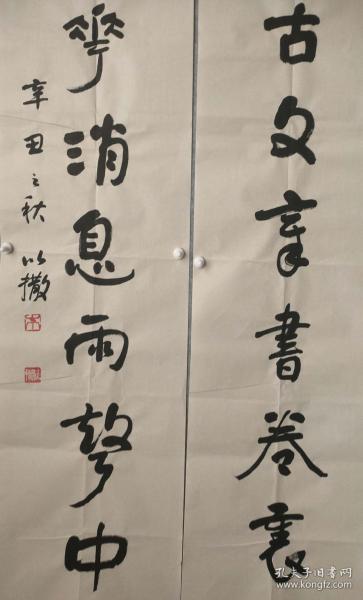 古文章書卷裏
華消息雨聲中
辛丑之秋 以撒
孔夫子旧书网
www.kongfz.com